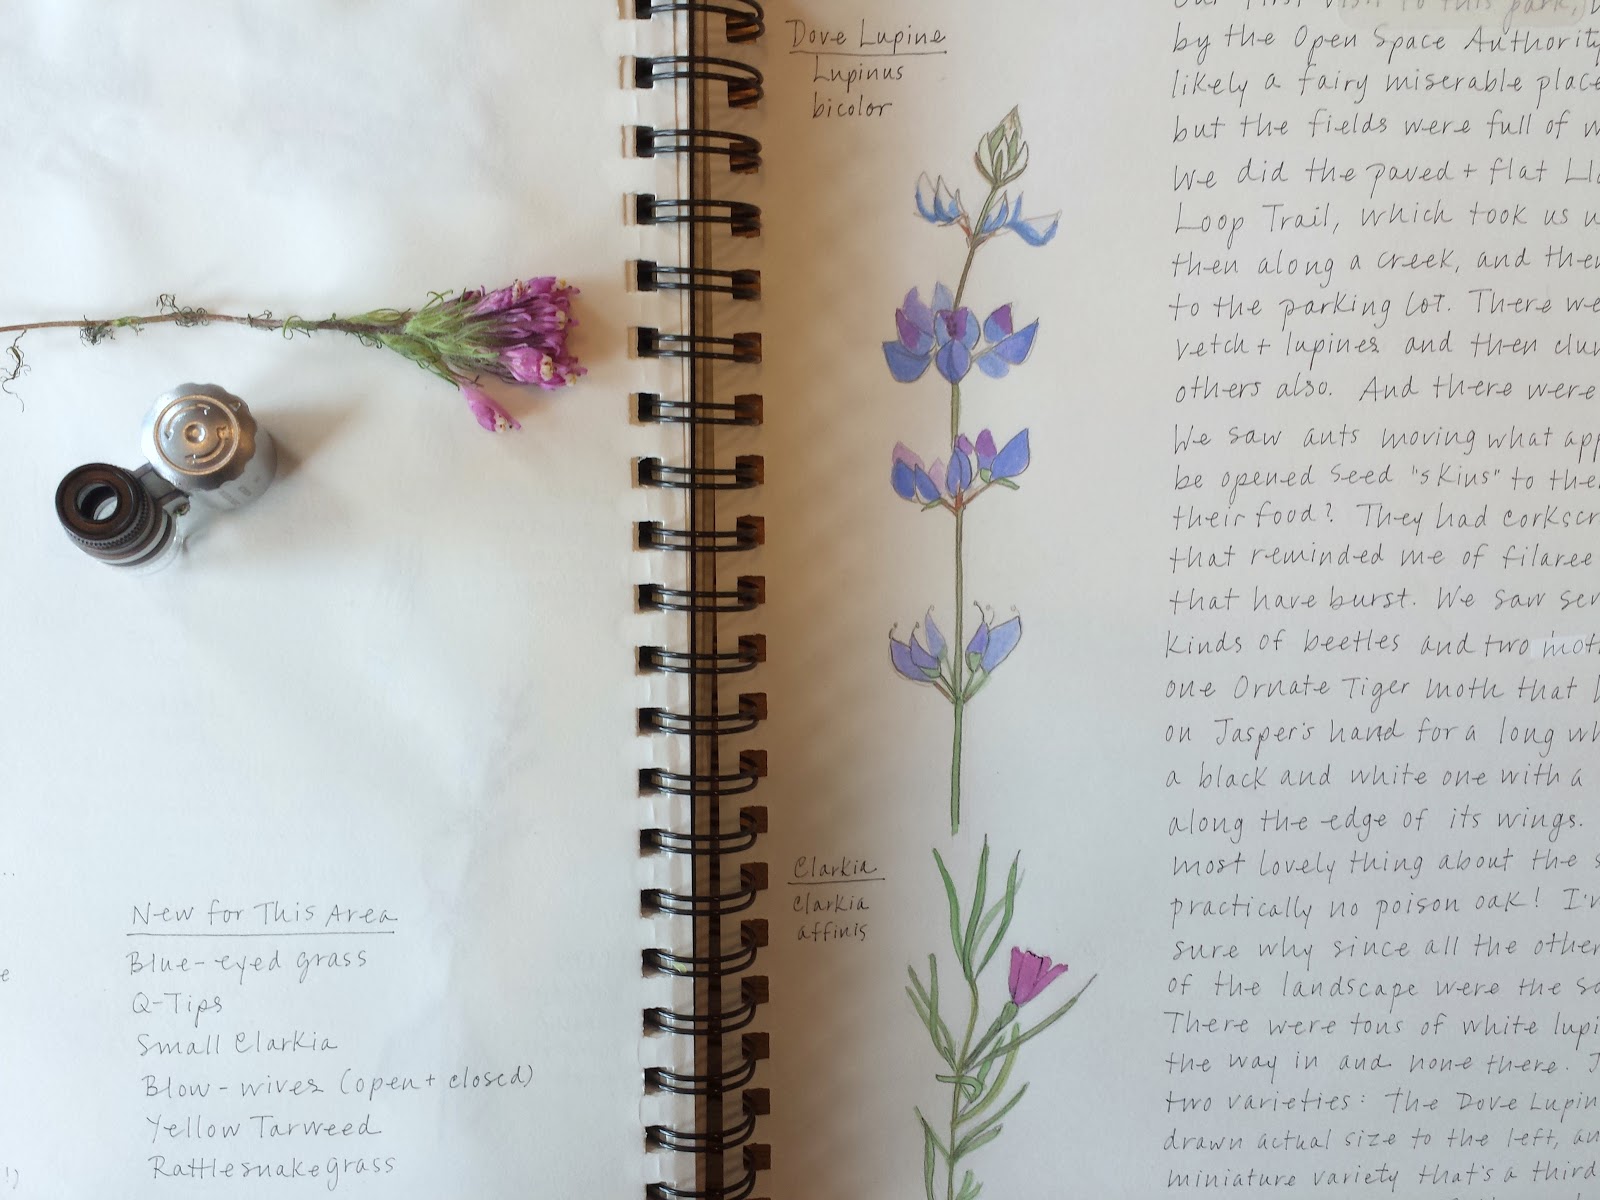 New for This Area
Blue-eyed grass
Q-Tips
Small Clarkia
Blow-wives (open + closed)
Yellow Tarweed
Rattlesnakegrass
e
!)
Dove Lupine
Lupinus
bicolor
Clarkia
clarkia
affinis
Our first visit to this park,
by the Open Space Authority
likely a fairy miserable place
but the fields were full of w
We did the paved + flat Ll
Loop Trail, which took us u
then along a creek, and then
to the parking lot. There we
vetch + lupines and then clu
others also. And there were
We saw ants moving what app
be opened seed "skins" to the
their food? They had corkscr
that reminded me of filaree
that have burst. We saw sev
kinds of beetles and two moth
one Ornate Tiger Moth that l
on Jasper's hand for a long wh
a black and white one with a
along the edge of its wings.
most lovely thing about the s
practically no poison oak! I'm
sure why since all the other
of the landscape were the sa
There were tons of white lupi
the way in and none there. I
two varieties: The Dove Lupin
drawn actual size to the left, an
miniature variety that's a third